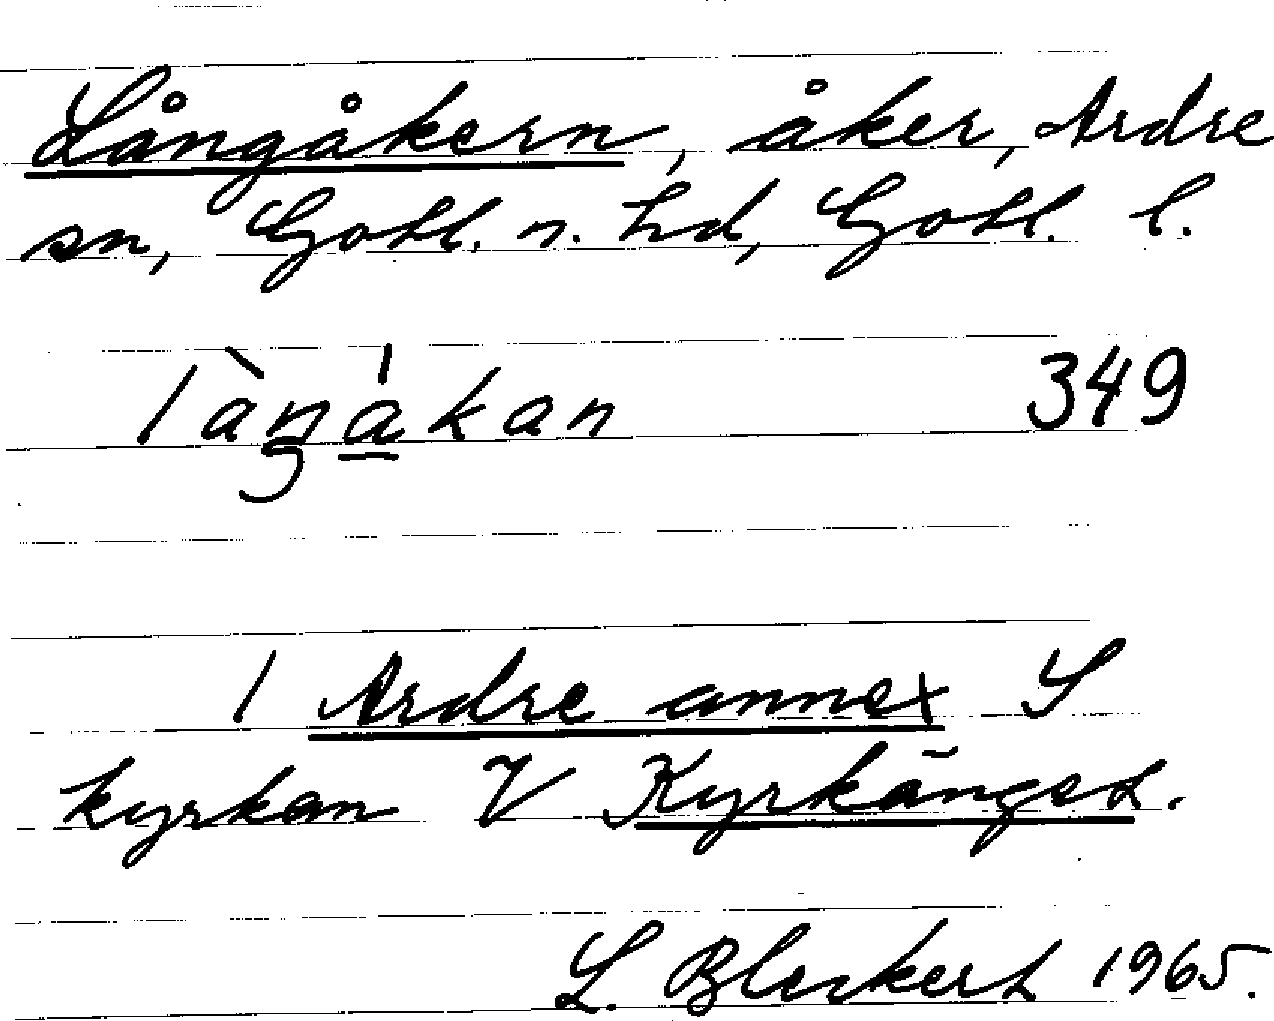 Långåkern, åker, Ardre
sn, Gotl. n. hd, Gotl. l.
làŋá̱kan 349
I Ardre annex S
kyrkan V Kyrkänget.
L. Bleckert 1965.